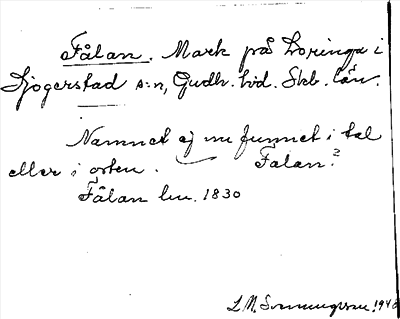 Fålan. Mark på Loringa i
Sjogerstad s:n, Gudh. hd. Skb. län.
Namnet ej nu funnet i tal
eller i orten. Falan?
Fålan lm. 1830
L.M. Svenungsson. 1940